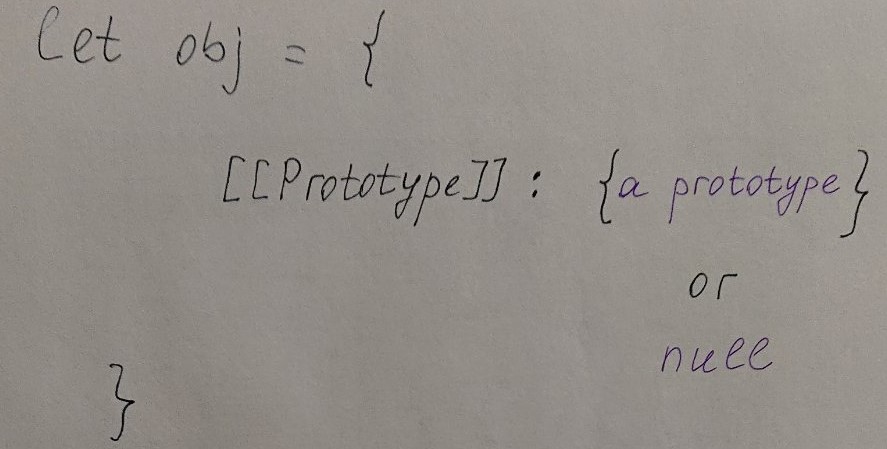 let obj = {
[[Prototype]] : {a prototype}
or
null
}